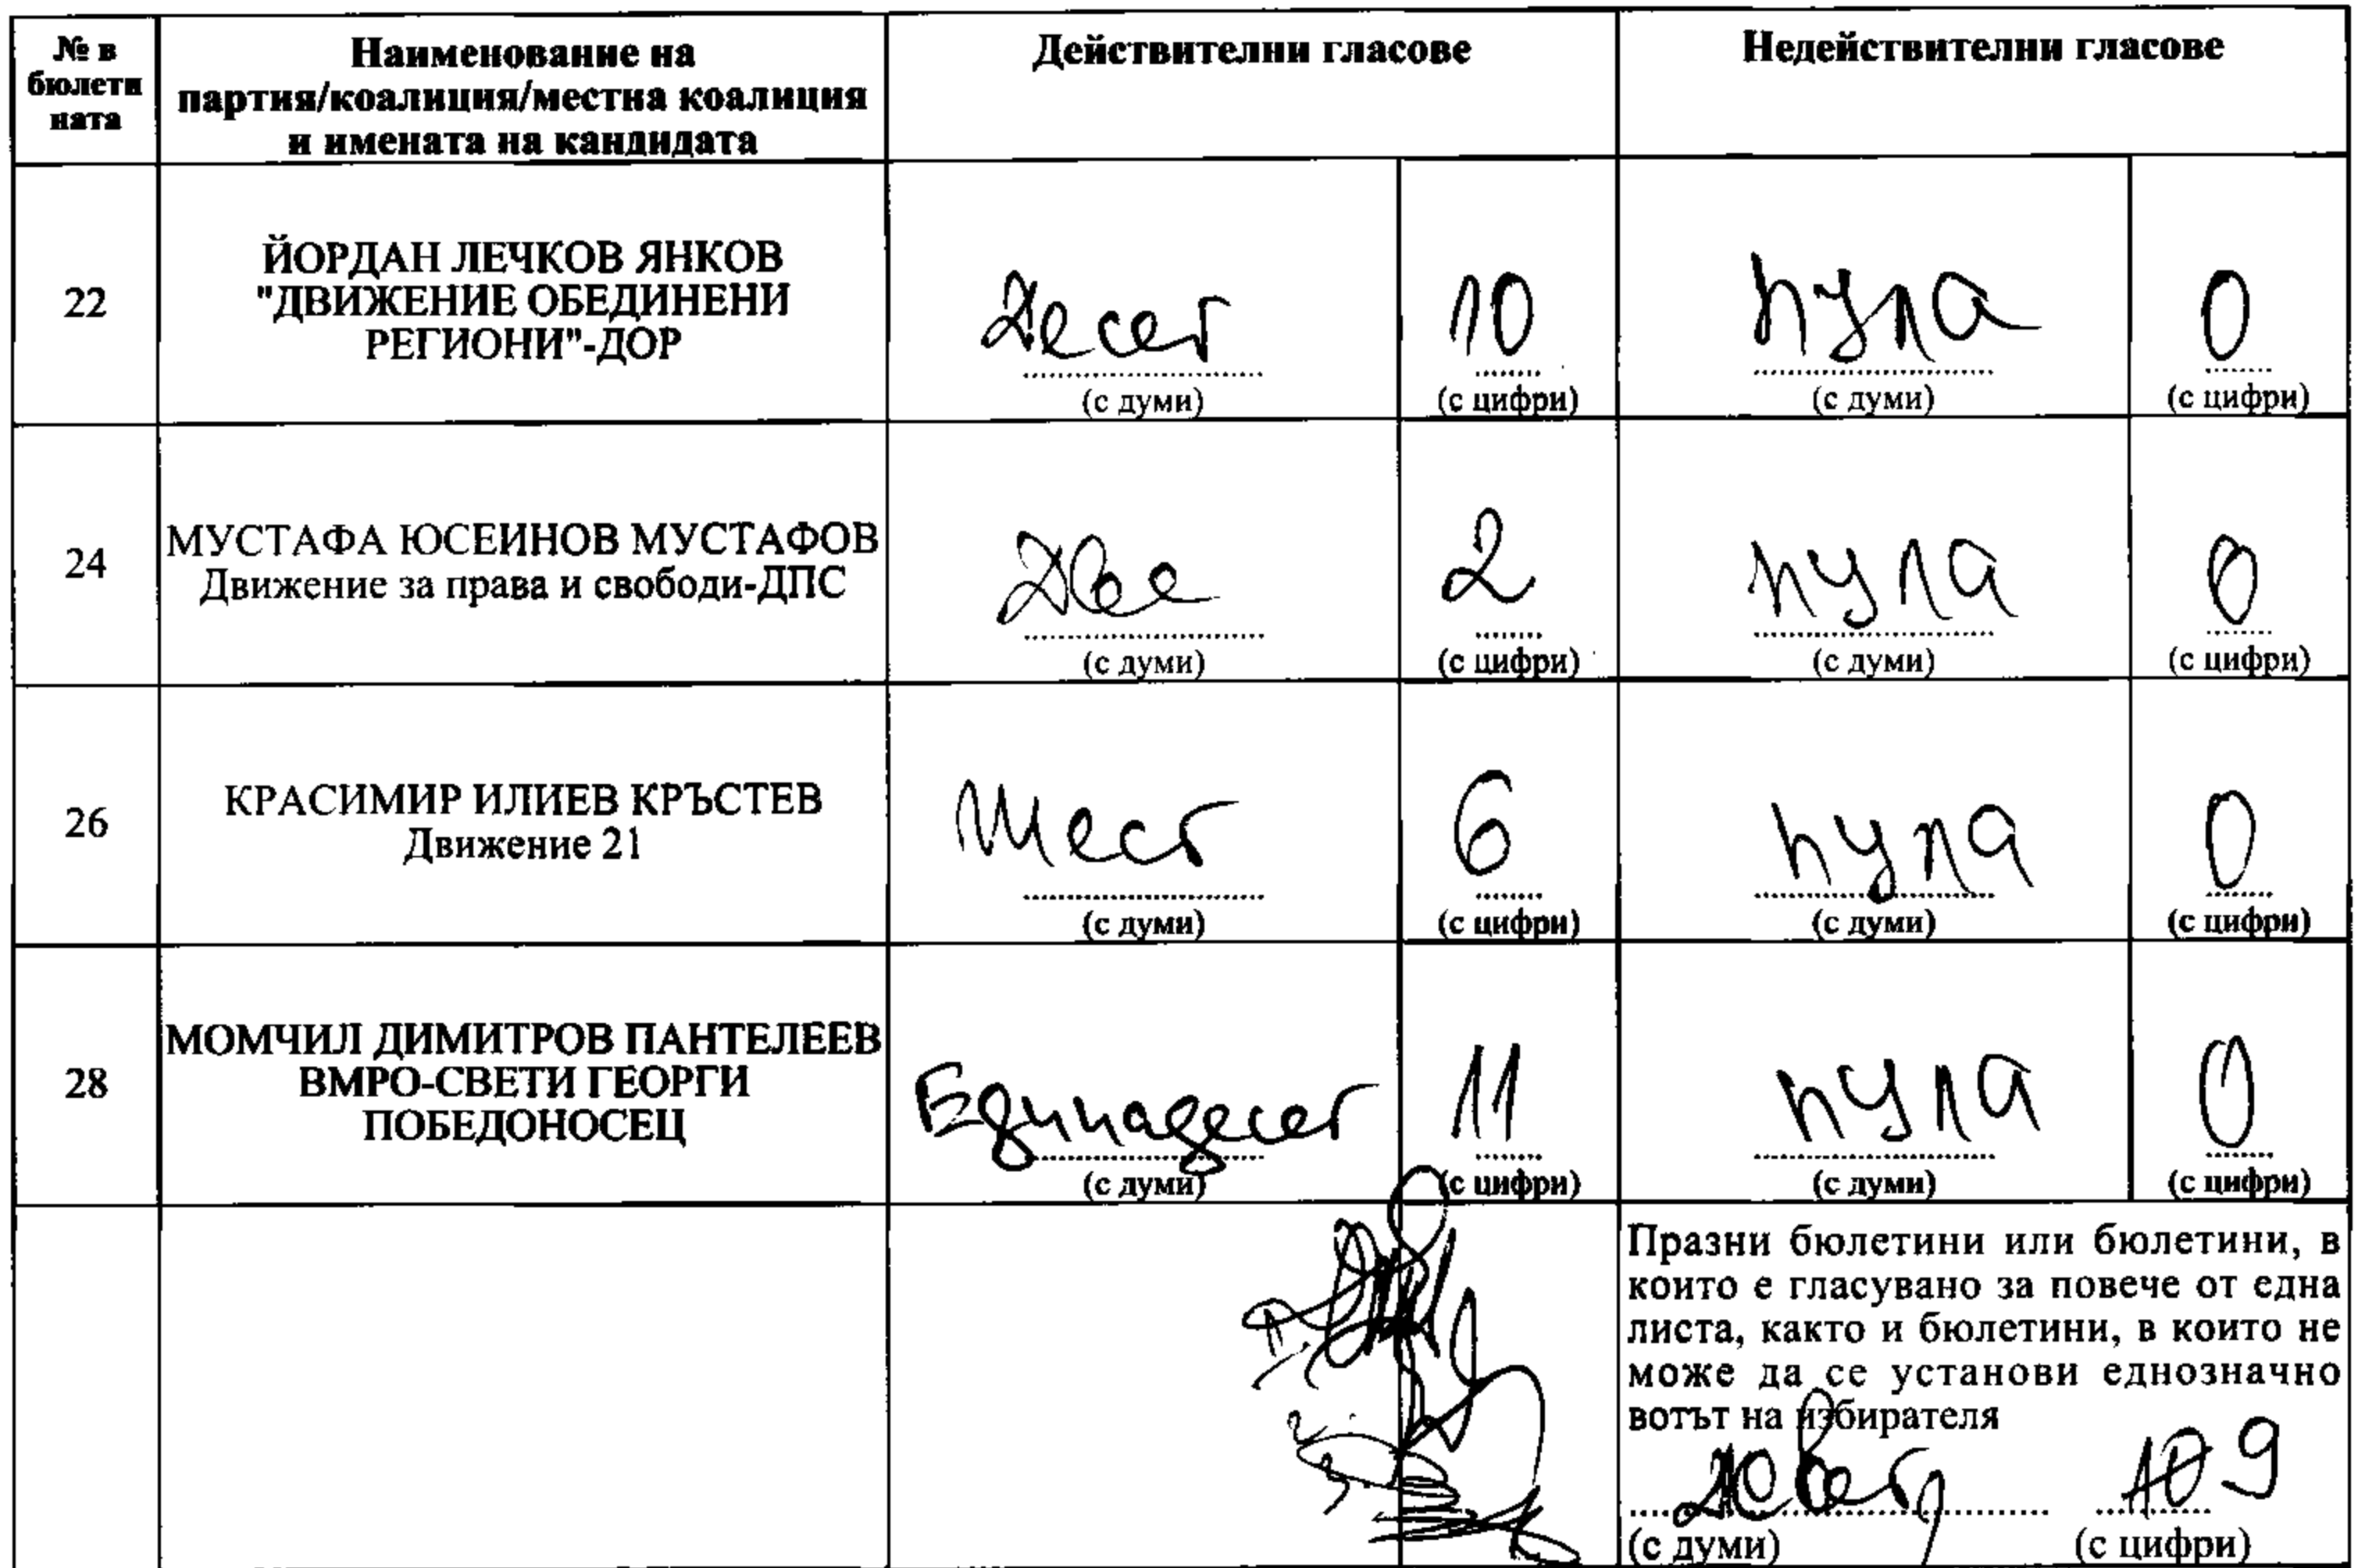 № в
бюлети
ната
Наименование на
партия/коалиция/местна коалиция
и имената на кандидата
Действителни гласове
Недействителни гласове
22
ЙОРДАН ЛЕЧКОВ ЯНКОВ
"ДВИЖЕНИЕ ОБЕДИНЕНИ
РЕГИОНИ"-ДОР
Десет
(с думи)
10
(с цифри)
нула
(с думи)
0
(с цифри)
24
МУСТАФА ЮСЕИНОВ МУСТАФОВ
Движение за права и свободи-ДПС
Две
(с думи)
2
(с цифри)
нула
(с думи)
0
(с цифри)
26
КРАСИМИР ИЛИЕВ КРЪСТЕВ
Движение 21
Шест
(с думи)
6
(с цифри)
нула
(с думи)
0
(с цифри)
28
МОМЧИЛ ДИМИТРОВ ПАНТЕЛЕЕВ
ВМРО-СВЕТИ ГЕОРГИ
ПОБЕДОНОСЕЦ
Единадесет
(с думи)
11
(с цифри)
нула
(с думи)
0
(с цифри)
Празни бюлетини или бюлетини, в
които е гласувано за повече от една
листа, както и бюлетини, в които не
може да се установи еднозначно
вотът на избирателя
9
(с думи) (с цифри)